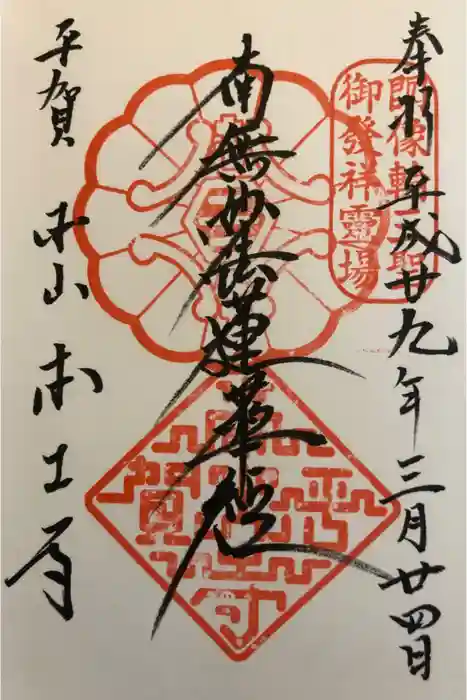 奉拝 平成廿九年三月廿四日
朗像輪三聖
御發祥靈場
南無妙法蓮華経
平賀 本山 本土寺